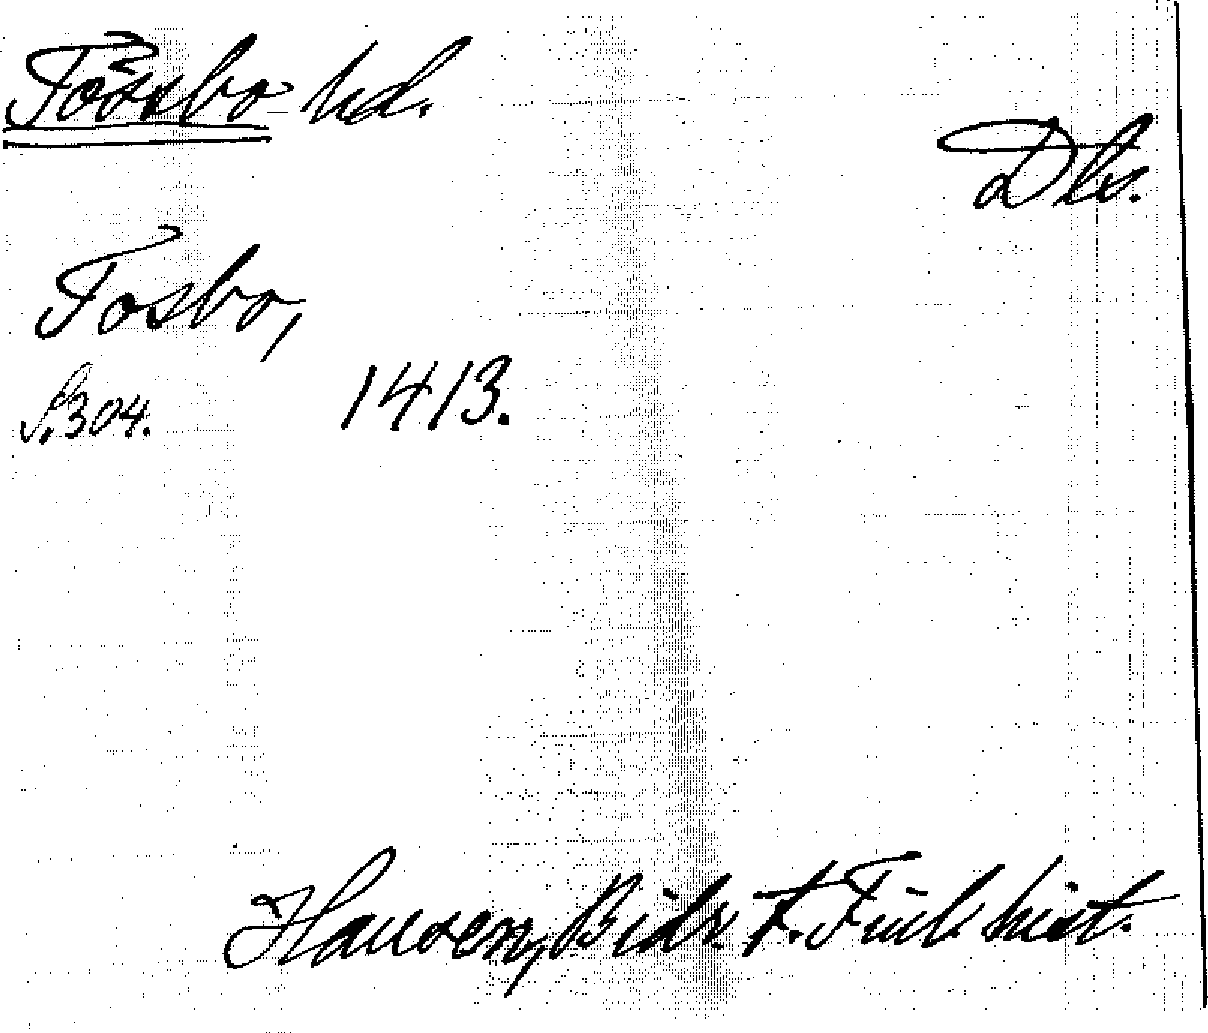 Tössbo hd.
Dls.
Tosbo,
S.304. 1413.
Hausen, Bidr. t. Finl. hist.